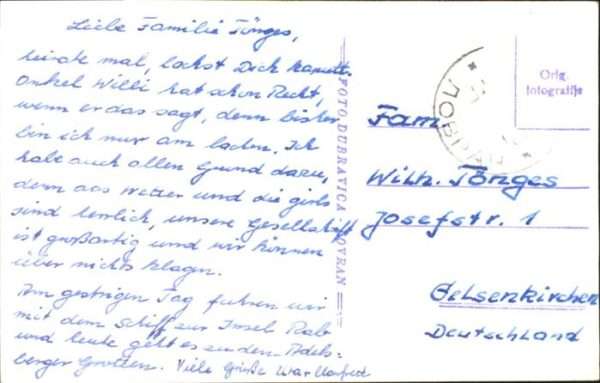 Liebe Familie Tönges,
heirate mal, lachst Dich kaputt.
Onkel Willi hat schon Recht,
wenn er das sagt, denn bisher
bin ich nur am lachen. Ich
habe auch allen Grund dazu,
denn das Wetter und die girls
sind herrlich, unsere Gesellschaft
ist großartig und wir können
über nichts klagen.
Am gestrigen Tag fuhren wir
mit dem Schiff zur Insel Rab
und heute geht es zu den Adels=
berger Grotten. Viele Grüße
FOTO DUBRATICA LOVRAN
Orig.
fotografija
Fam
Wilh. Tönges
Josefstr. 1
Gelsenkirchen
Deutschland